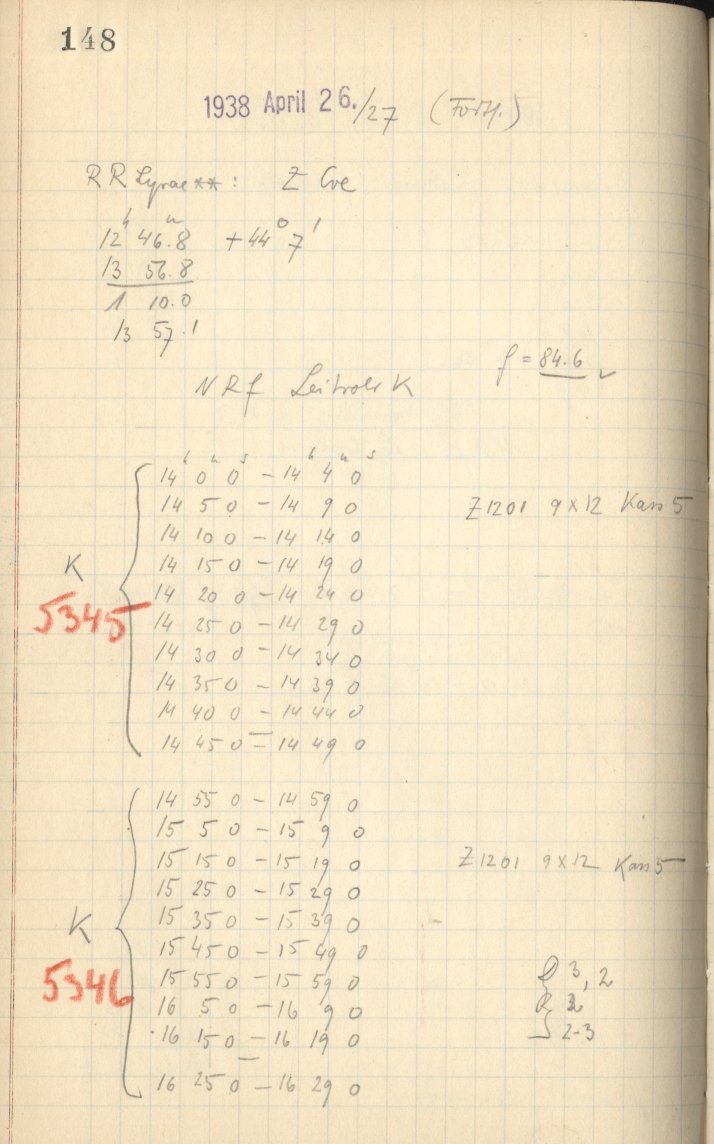 148
1938 April 26./27 (Forts.)
RR Lyrae **: Z CVe
12ʰ 46.8ᵐ +44° 7'
13 56.8
1 10.0
13 57.1
f = 84.6 ✓
NRf Leitrohr K
14ʰ 0ᵐ 0ˢ – 14ʰ 4ᵐ 0ˢ
14 5 0 – 14 9 0
Z1201 9×12 Kass 5
14 10 0 – 14 14 0
14 15 0 – 14 19 0
K
14 20 0 – 14 24 0
5345
14 25 0 – 14 29 0
14 30 0 – 14 34 0
14 35 0 – 14 39 0
14 40 0 – 14 44 0
14 45 0 – 14 49 0
14 55 0 – 14 59 0
15 5 0 – 15 9 0
15 15 0 – 15 19 0
Z1201 9×12 Kass 5
15 25 0 – 15 29 0
15 35 0 – 15 39 0
K
15 45 0 – 15 49 0
15 55 0 – 15 59 0
3, 2
5346
16 5 0 – 16 9 0
2
16 15 0 – 16 19 0
2-3
16 25 0 – 16 29 0